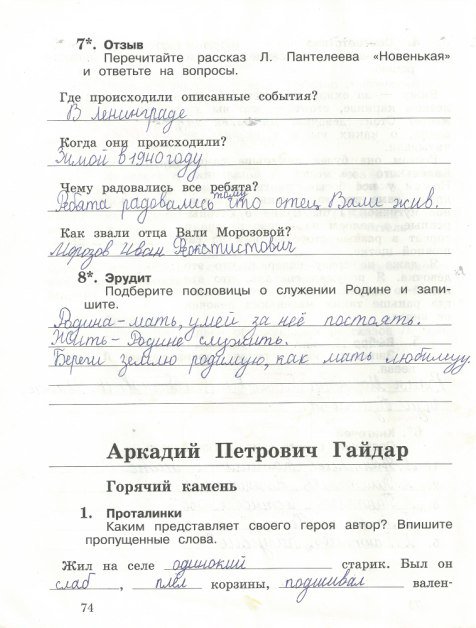 7*. Отзыв
Перечитайте рассказ Л. Пантелеева «Новенькая»
и ответьте на вопросы.
Где происходили описанные события?
В Ленинграде
Когда они происходили?
Зимой в 1940 году
Чему радовались все ребята?
тому
Ребята радовались что отец Вали жив.
Как звали отца Вали Морозовой?
Морозов Иван Феоктистович
8*. Эрудит
Подберите пословицы о служении Родине и запи-
шите.
Родина-мать, умей за неё постоять.
Жить - Родине служить.
Береги землю родимую, как мать любимую.
Аркадий Петрович Гайдар
Горячий камень
1. Проталинки
Каким представляет своего героя автор? Впишите
пропущенные слова.
Жил на селе одинокий старик. Был он
слаб, плёл корзины, подшивал вален-
74